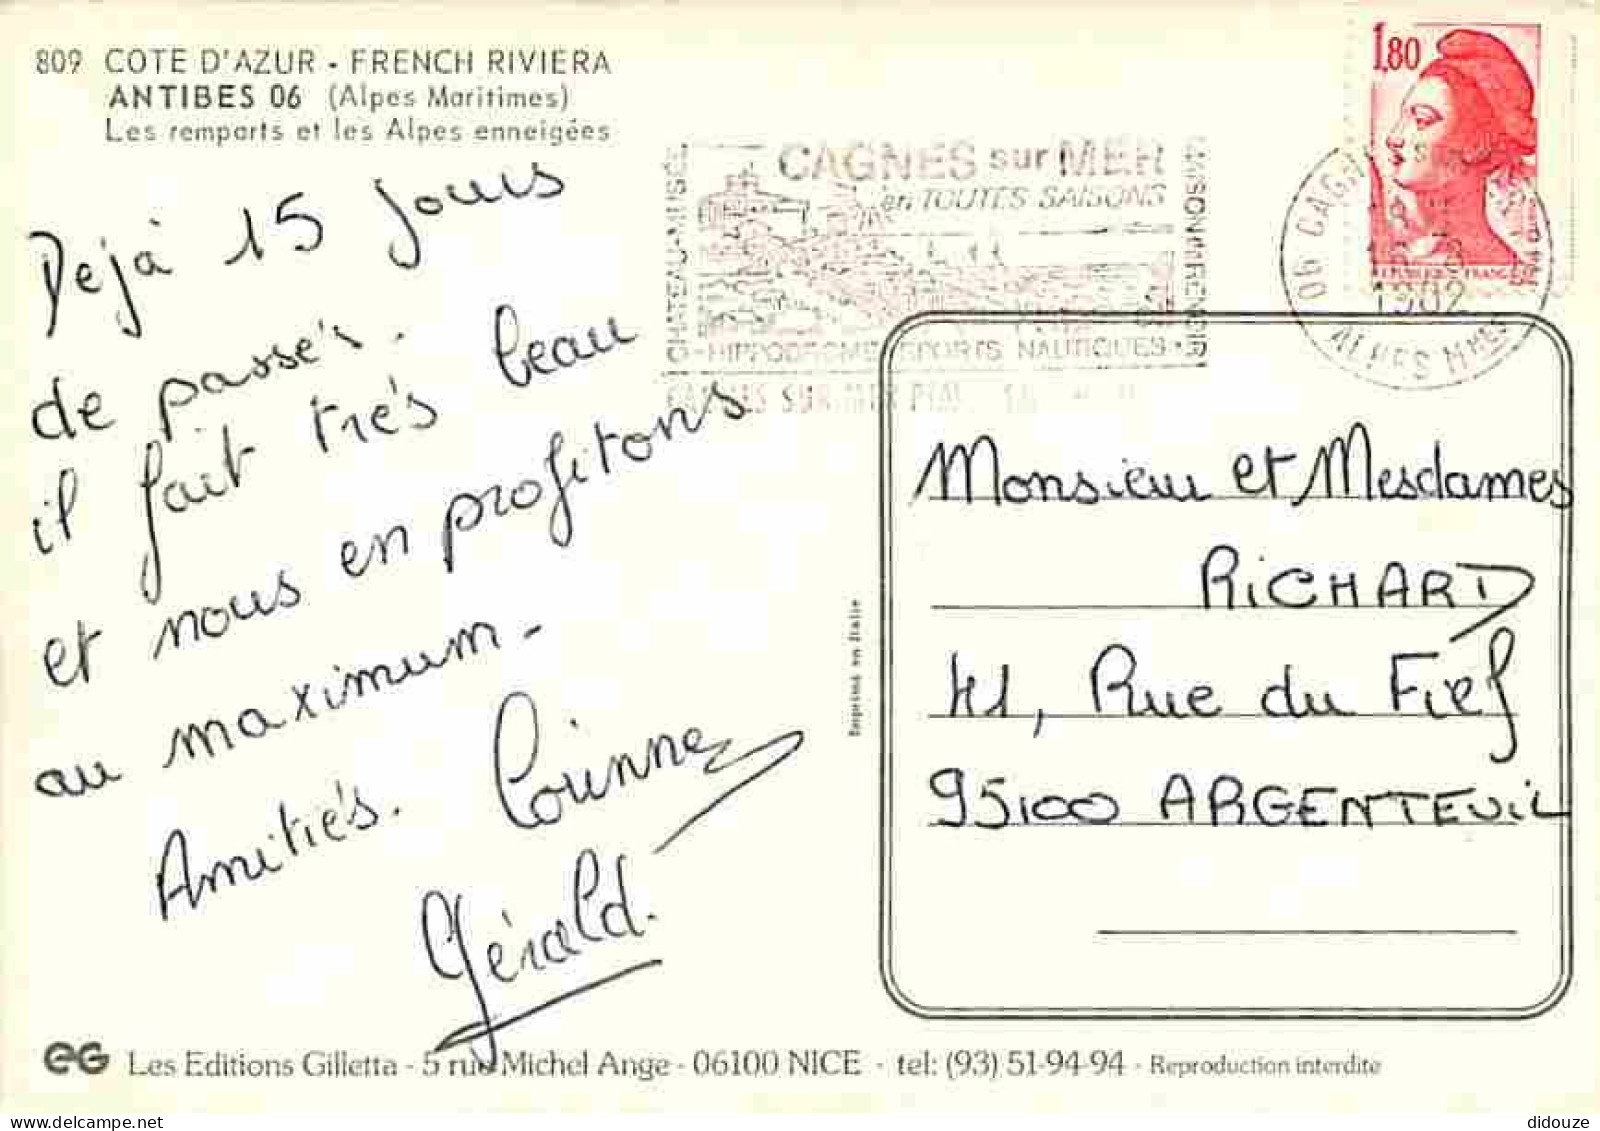 809 COTE D'AZUR - FRENCH RIVIERA
ANTIBES 06 (Alpes Maritimes)
Les remparts et les Alpes enneigées
Dejà 15 jours
de passés.
il fait très beau
et nous en profitons
au maximum -
Amitiés. Corinne
Gérald.
1,80
REPUBLIQUE FRANÇAISE
CAGNES sur MER
en TOUTES SAISONS
CHATEAU-MUSÉE
MAISON RENOIR
HIPPODROME SPORTS NAUTIQUES
CAGNES SUR MER
06 CAGNES SUR MER
ALPES MMES
Imprimé en Italie
Monsieur et Mesdames
RICHARD
41, Rue du Fief
95100 ARGENTEUIL
eG Les Editions Gilletta - 5 rue Michel Ange - 06100 NICE - tel: (93) 51-94-94 - Reproduction interdite
didouze